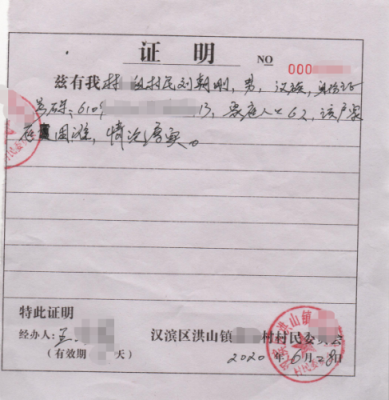 证明
NO 000
兹有我村 组村民刘朝刚，男，汉族，身份证
号码：6109 13，家庭人口6人，该户家
庭困难，情况属实。
特此证明
经办人：
（有效期 天）
汉滨区洪山镇 村村民委员会
2020年6月28日
洪山镇
村民委